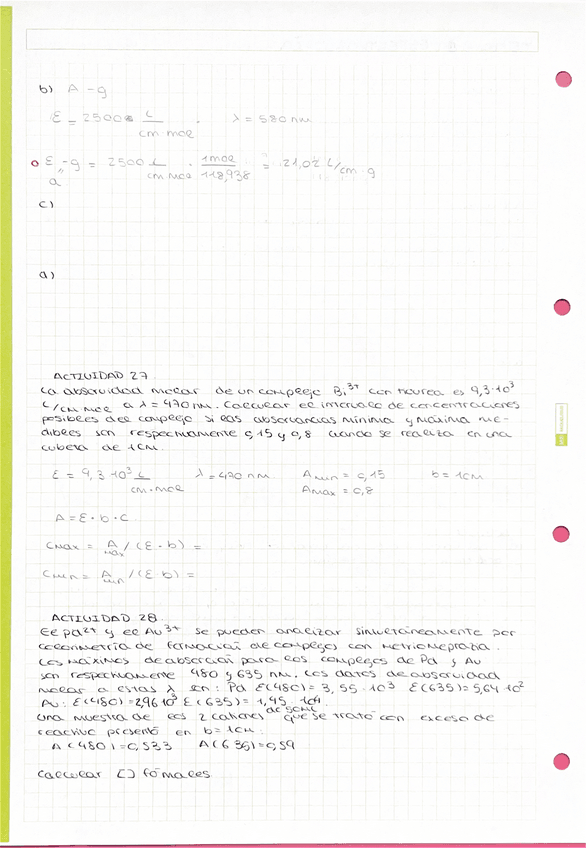 b) A-g
ε = 2500 L/cm·mol · λ = 580 nm
ε-g = 2500 L/cm·mol · 1mol/118,938 = 21,02 L/cm·g
a"
c)
d)
ACTIVIDAD 27.
La absorvidad molar de un complejo Bi³⁺ con tiourea es 9,3·10³
L/cm·mol a λ = 470 nm. Calcular el intervalo de concentraciones
posibles del complejo si las absorvancias mínima y máxima me-
dibles son respectivamente 0,15 y 0,8 cuando se realiza en una
cubeta de 1cm.
ε = 9,3·10³ L/cm·mol λ = 470 nm Amin = 0,15 b = 1cm
Amax = 0,8
A = ε·b·c.
Cmax = Amax/(ε·b) =
Cmin = Amin/(ε·b) =
ACTIVIDAD 28.
El Pd²⁺ y el Au³⁺ se pueden analizar simultáneamente por
colorimetría de formación de complejos con metriomeprazia.
Los máximos de absorción para los complejos de Pd y Au
son respectivamente 480 y 635 nm. Los datos de absorvidad
molar a estas λ son: Pd ε(480) = 3,55·10³ ε(635) = 5,64·10²
Au: ε(480) = 2,96·10³ ε(635) = 1,45·10⁴
de 50mL
una muestra de los 2 cationes que se trató con exceso de
reactivo presentó en b = 1cm:
A(480) = 0,533 A(635) = 0,59
Calcular [] formales